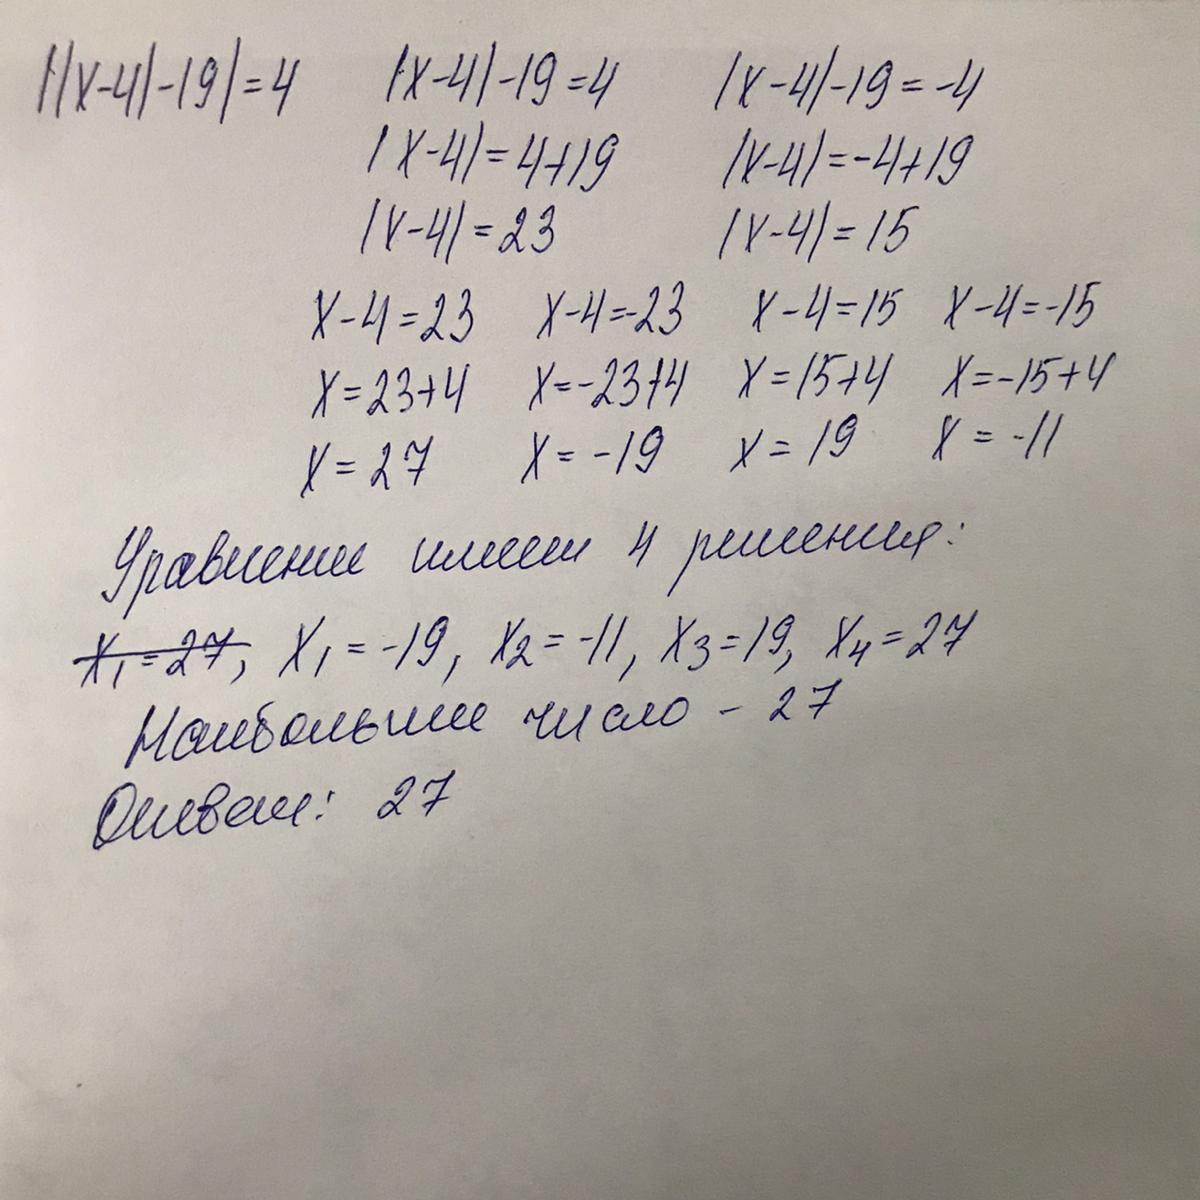 ||x-4|-19|=4 |x-4|-19=4 |x-4|-19=-4
|x-4|=4+19 |x-4|=-4+19
|x-4|=23 |x-4|=15
x-4=23 x-4=-23 x-4=15 x-4=-15
x=23+4 x=-23+4 x=15+4 x=-15+4
x=27 x=-19 x=19 x=-11
Уравнение имеет 4 решения:
x₁=27, x₁=-19, x₂=-11, x₃=19, x₄=27
Наибольшее число - 27
Ответ: 27